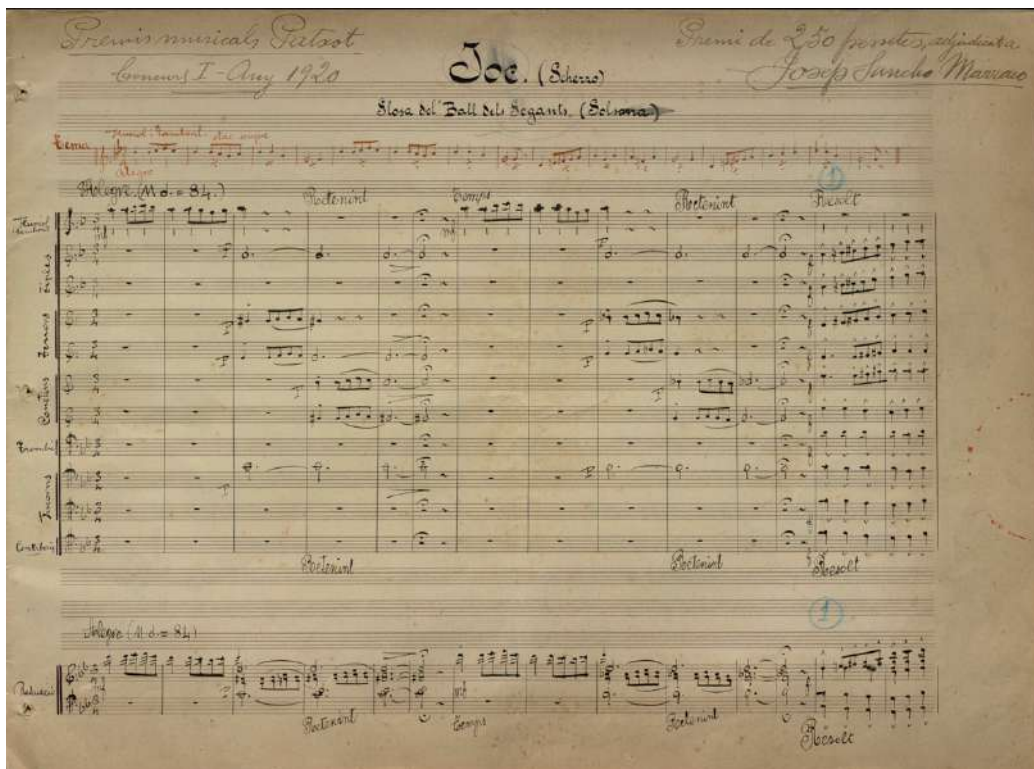 Premis musicals Patxot
Concurs I - Any 1920
Premi de 250 pessetes, adjudicat a
Josep Sancho Marraco
Joc. (Scherzo)
Glosa del "Ball dels Gegants. (Solsona)
Tema
Flaviol i Tamborí
Alegre
1
Alegre. (M d. = 84.)
Retenint
Temps
Retenint
Resolt
Flaviol
Tamborí
mf
mf
Tiples
Tenors
Cornetins
Trombó
Fiscorns
Contrabaix
Retenint
Retenint
Resolt
1
Alegre (M d. = 84)
Reducció
mf
mf
Retenint
Temps
Retenint
Resolt